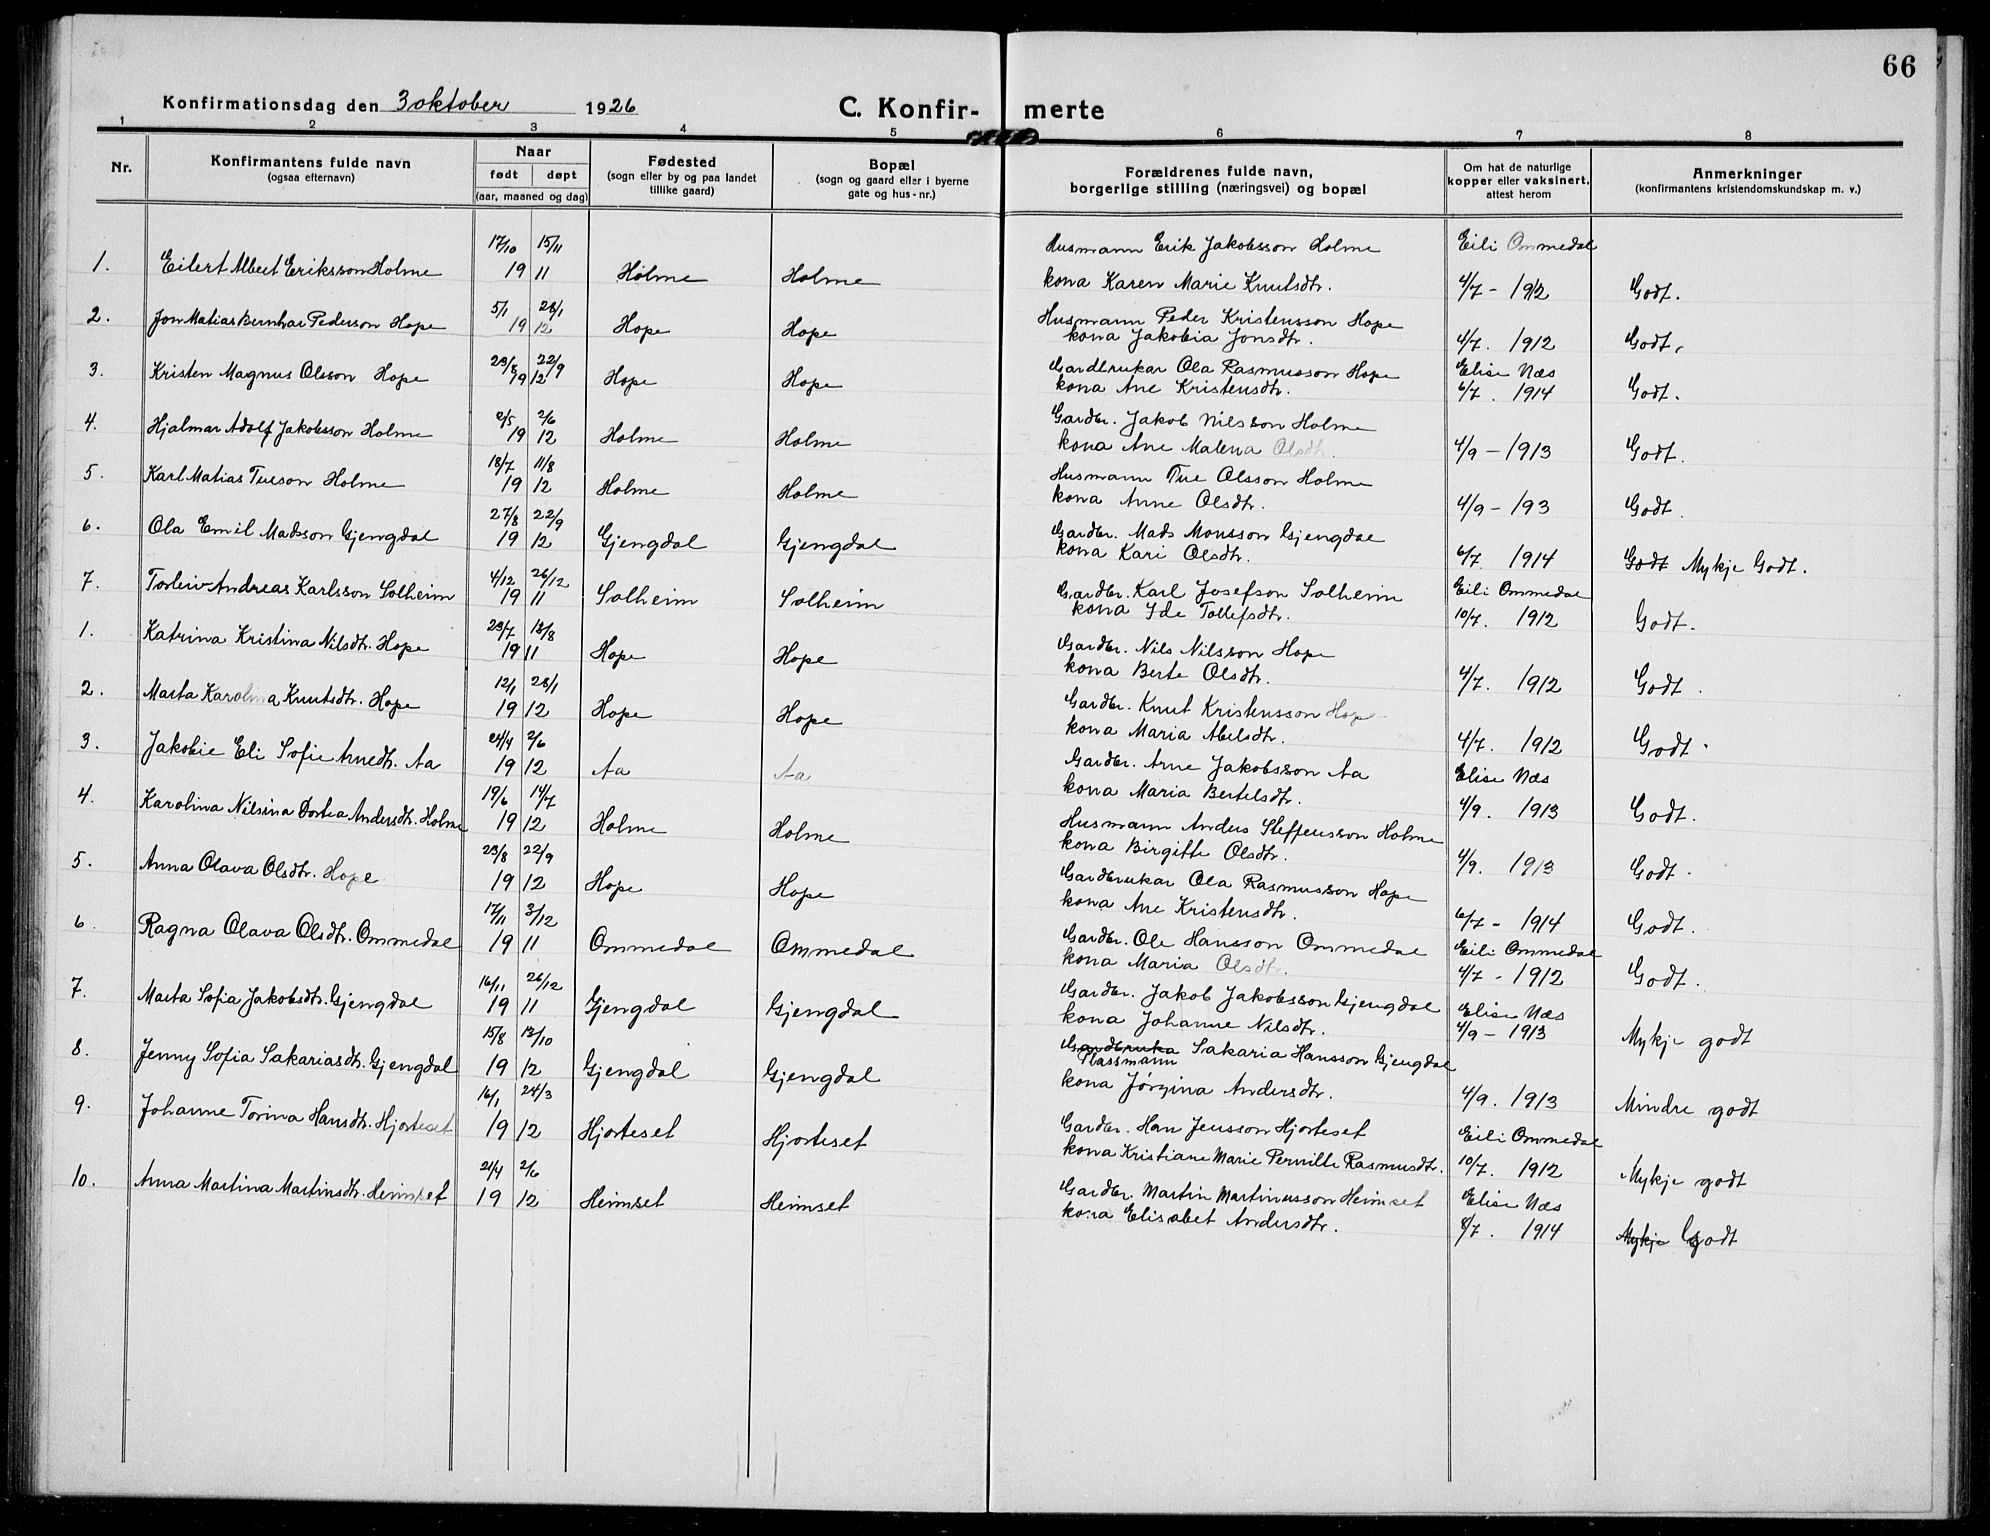 66
Konfirmationsdag den 3 oktober 1926
C. Konfir- merte
1 2 3 4 5 6 7 8
Nr.
Konfirmantens fulde navn
(ogsaa efternavn)
Naar
født døpt
(aar, maaned og dag)
Fødested
(sogn eller by og paa landet
tillike gaard)
Bopæl
(sogn og gaard eller i byerne
gate og hus-nr.)
Forældrenes fulde navn,
borgerlige stilling (næringsvei) og bopæl
Om hat de naturlige
kopper eller vaksinert,
attest herom
Anmerkninger
(konfirmantens kristendomskundskap m. v.)
17/10 15/11 Husmann Erik Jakobsson Holme Eili Ommedal
1. Eilert Albert Eriksson Holme 19 11 Holme Holme kona Karen Marie Knutsdtr. 4/7 - 1912 Godt.
5/1 28/1 Husmann Peder Kristensson Hope
2. Jon Matias Bernhar Pederson Hope 19 12 Hope Hope kona Jakobia Jonsdtr. 4/7. 1912 Godt.
23/8 22/9 Gardbrukar Ola Rasmusson Hope Elise Næs
3. Kristen Magnus Olsson Hope 19 12 Hope Hope kona Ane Kristensdtr. 6/7. 1914 Godt.
2/5 2/6 Gardbr. Jakob Nilsson Holme
4. Hjalmar Adolf Jakobsson Holme 19 12 Holme Holme kona Ane Malena Olsdtr. 4/9 - 1913 Godt.
18/7 11/8 Husmann Tue Olsson Holme
5. Karl Matias Tueson Holme 19 12 Holme Holme kona Anne Olsdtr. 4/9 - 193 Godt.
27/8 22/9 Gardbr. Mads Monsson Gjengdal
6. Ola Emil Madsson Gjengdal 19 12 Gjengdal Gjengdal kona Kari Olsdtr. 6/7. 1914 Godt Mykje Godt.
4/12 26/12 Gardbr. Karl Josefson Solheim Eili Ommedal
7. Torleiv Andreas Karlsson Solheim 19 11 Solheim Solheim kona Ide Tollefsdtr. 10/7. 1912 Godt.
23/7 13/8 Gardbr. Nils Nilsson Hope
1. Katrina Kristina Nilsdtr. Hope 19 11 Hope Hope kona Berte Olsdtr. 4/7. 1912 Godt.
12/1 28/1 Gardbr. Knut Kristensson Hope
2. Marta Karolina Knutsdtr. Hope 19 12 Hope Hope kona Maria Abelsdtr. 4/7. 1912 Godt.
24/4 2/6 Gardbr. Arne Jakobsson Aa Elise Næs
3. Jakobie Eli Sofie Arnedtr. Aa 19 12 Aa Aa kona Maria Bertelsdtr. 4/9. 1913 Godt.
19/6 14/7 Husmann Anders Steffensson Holme
4. Karolina Nilsina Dortea Andersdtr. Holme 19 12 Holme Holme kona Birgitte Olsdtr. 4/9. 1913 Godt.
23/8 22/9 Gardbrukar Ola Rasmusson Hope
5. Anna Olava Olsdtr. Hope 19 12 Hope Hope kona Ane Kristensdtr. 6/7 - 1914 Godt.
17/11 3/12 Gardbr. Ole Hansson Ommedal Eili Ommedal
6. Ragna Olava Olsdtr. Ommedal 19 11 Ommedal Ommedal kona Maria Olsdtr. 4/7 - 1912 Godt.
16/11 26/12 Gardbr. Jakob Jakobsson Gjengdal Elise Næs
7. Marta Sofia Jakobsdtr. Gjengdal 19 11 Gjengdal Gjengdal kona Johanne Nilsdtr. 4/9 - 1913 Mykje godt
15/8 13/10 Gardbruka Sakaria Hansson Gjengdal
Plassmann
8. Jenny Sofia Sakariasdtr. Gjengdal 19 12 Gjengdal Gjengdal kona Jørgina Andersdtr. 4/9. 1913 Mindre godt
16/1 24/3 Gardbr. Han Jensson Hjorteset Eili Ommedal
9. Johanne Torina Hansdtr. Hjorteset 19 12 Hjorteset Hjorteset kona Kristiane Marie Pernille Rasmusdtr. 10/7. 1912 Mykje godt
21/4 2/6 Gardbr. Martin Martinusson Heimset Elise Næs
10. Anna Martina Martinsdtr. Heimset 19 12 Heimset Heimset kona Elisabet Andersdtr. 8/7. 1914 Mykje Godt